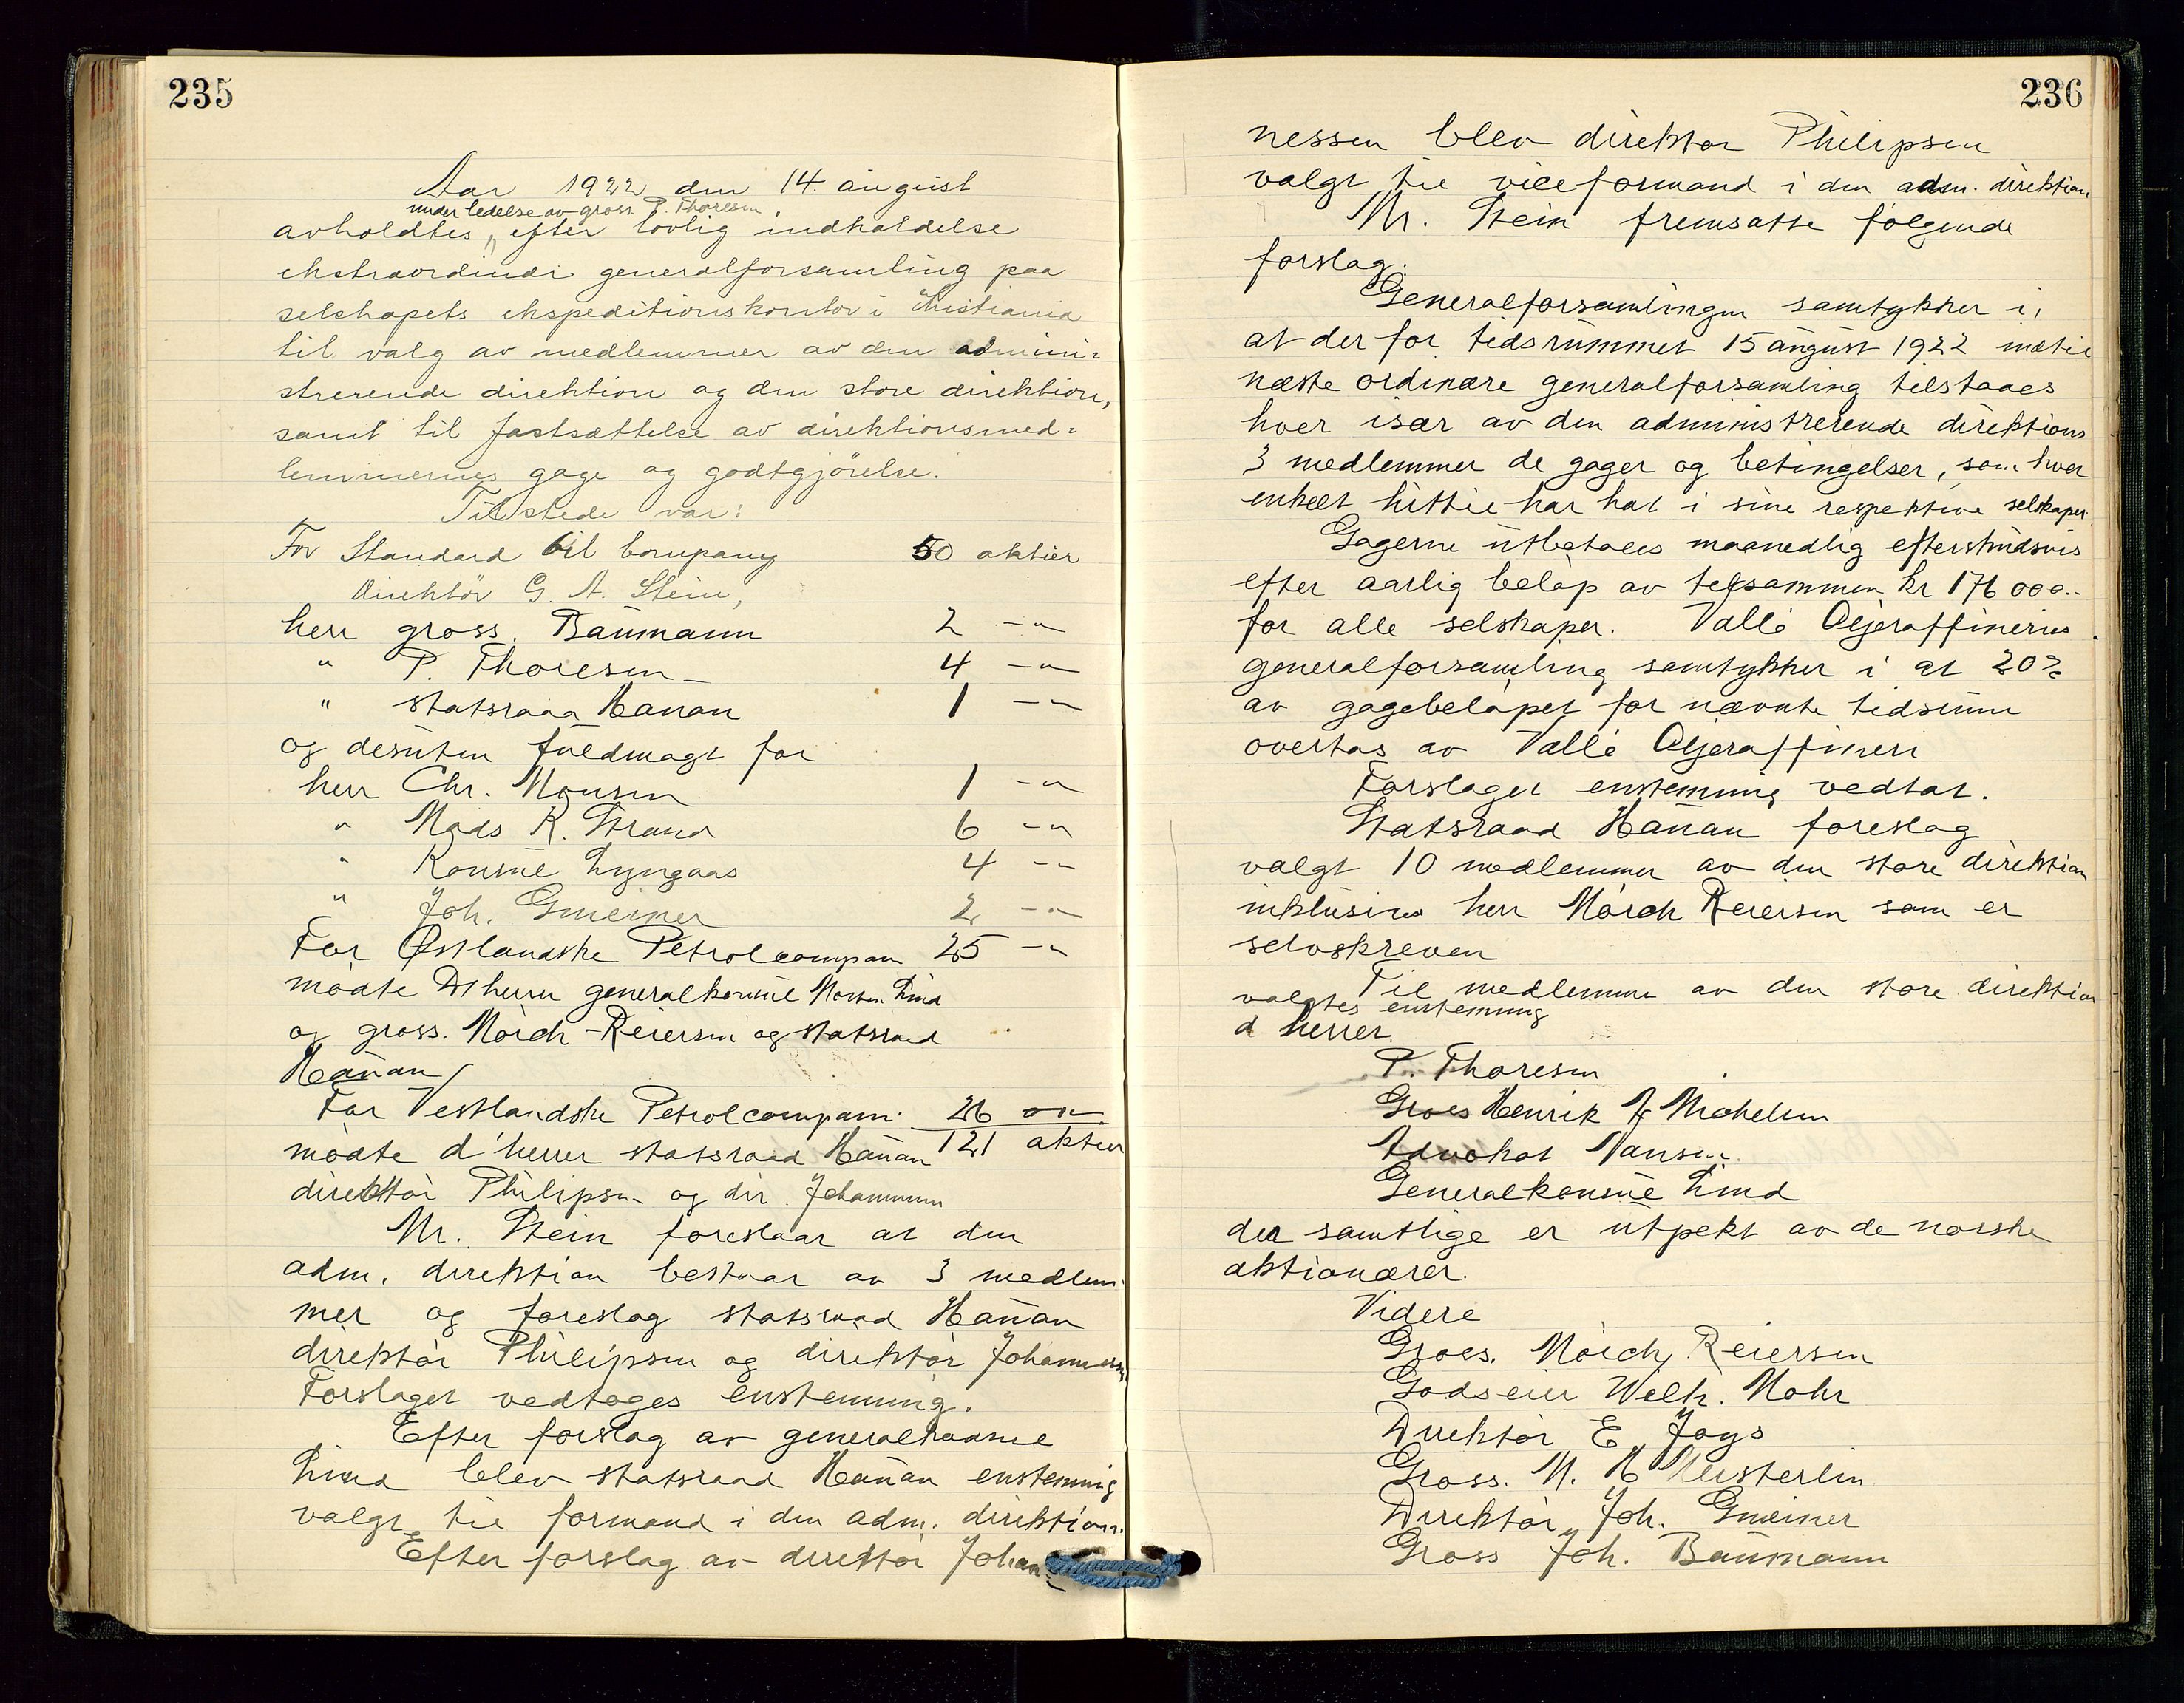 235
Aar 1922 den 14. august
under ledelse av gross. P. Thoresen
avholdtes, efter lovlig indkaldelse
ekstraordinær generalforsamling paa
selskapets ekspeditionskontor i Kristiania
til valg av medlemmer av den admini=
strerende direktion og den store direktion,
samt til fastsættelse av direktionsmed=
lemmernes gage og godtgjörelse.
Tilstede var:
For Standard Oil Company 50 aktier
Direktör G. A. Stein,
herr gross. Baumann 2 -"-
" P. Thoresen 4 -"-
" statsraad Hauan 1 -"-
og desuten fuldmagt for
herr Chr. Monsen 1 -"-
" Mads K. Strand 6 -"-
" Konsul Lyngaas 4 -"-
" Joh. Gmeiner 2 -"-
For Østlandske Petrolcompani 25 -"-
mødte D'herrer generalkonsul Lind
og gross. Mörch-Reiersen og statsraad
Hauan
For Vestlandske Petrolcompani 26 -"-
mødte d'herrer statsraad Hauan 121 aktier
direktör Philipsen og dir. Johannessen
Mr. Stein foreslaar at den
adm. direktion bestaar av 3 medlem
mer og foreslog statsraad Hauan
direktör Philipsen og direktör Johannessen
Forslaget vedtoges enstemmig.
Efter forslag av generalkonsul
Lind blev statsraad Hauan enstemmig
valgt til formand i den adm. direktion.
Efter forslag av direktör Johan-
236
nessen blev direktör Philipsen
valgt til viceformand i den adm. direktion
Mr. Stein fremsatte følgende
forslag:
Generalforsamlingen samtykker i,
at der for tidsrummet 15 august 1922 indtil
næste ordinære generalforsamling tilstaaes
hver især av den administrerende direktions
3 medlemmer de gager og betingelser, som hver
enkelt hittil har hat i sine respektive selskaper.
Gagerne utbetales maanedlig efterskudsvis
efter aarlig beløp av tilsammen kr 176 000.-
for alle selskaper. Vallö Oljeraffineries
generalforsamling samtykker i at 20%
av gagebeløpet for nævnte tidsrum
overtas av Vallö Oljeraffineri
Forslaget enstemmig vedtat.
Statsraad Hauan foreslog
valgt 10 medlemmer av den store direktion
inklusive herr Mörch Reiersen som er
selvskreven
Til medlemmer av den store direktion
valgtes enstemmig
d herrer.
P. Thoresen
Gross Henrik J. Michelsen
Advokat Nansen
Generalkonsul Lind
der samtlige er utpekt av de norske
aktionærer.
Videre
Gross. Mörch Reiersen
Godseier Wilh. Mohr
Direktör E Joys
Gross. M. H Meisterlin
Direktör Joh. Gmeiner
Gross Joh. Baumann